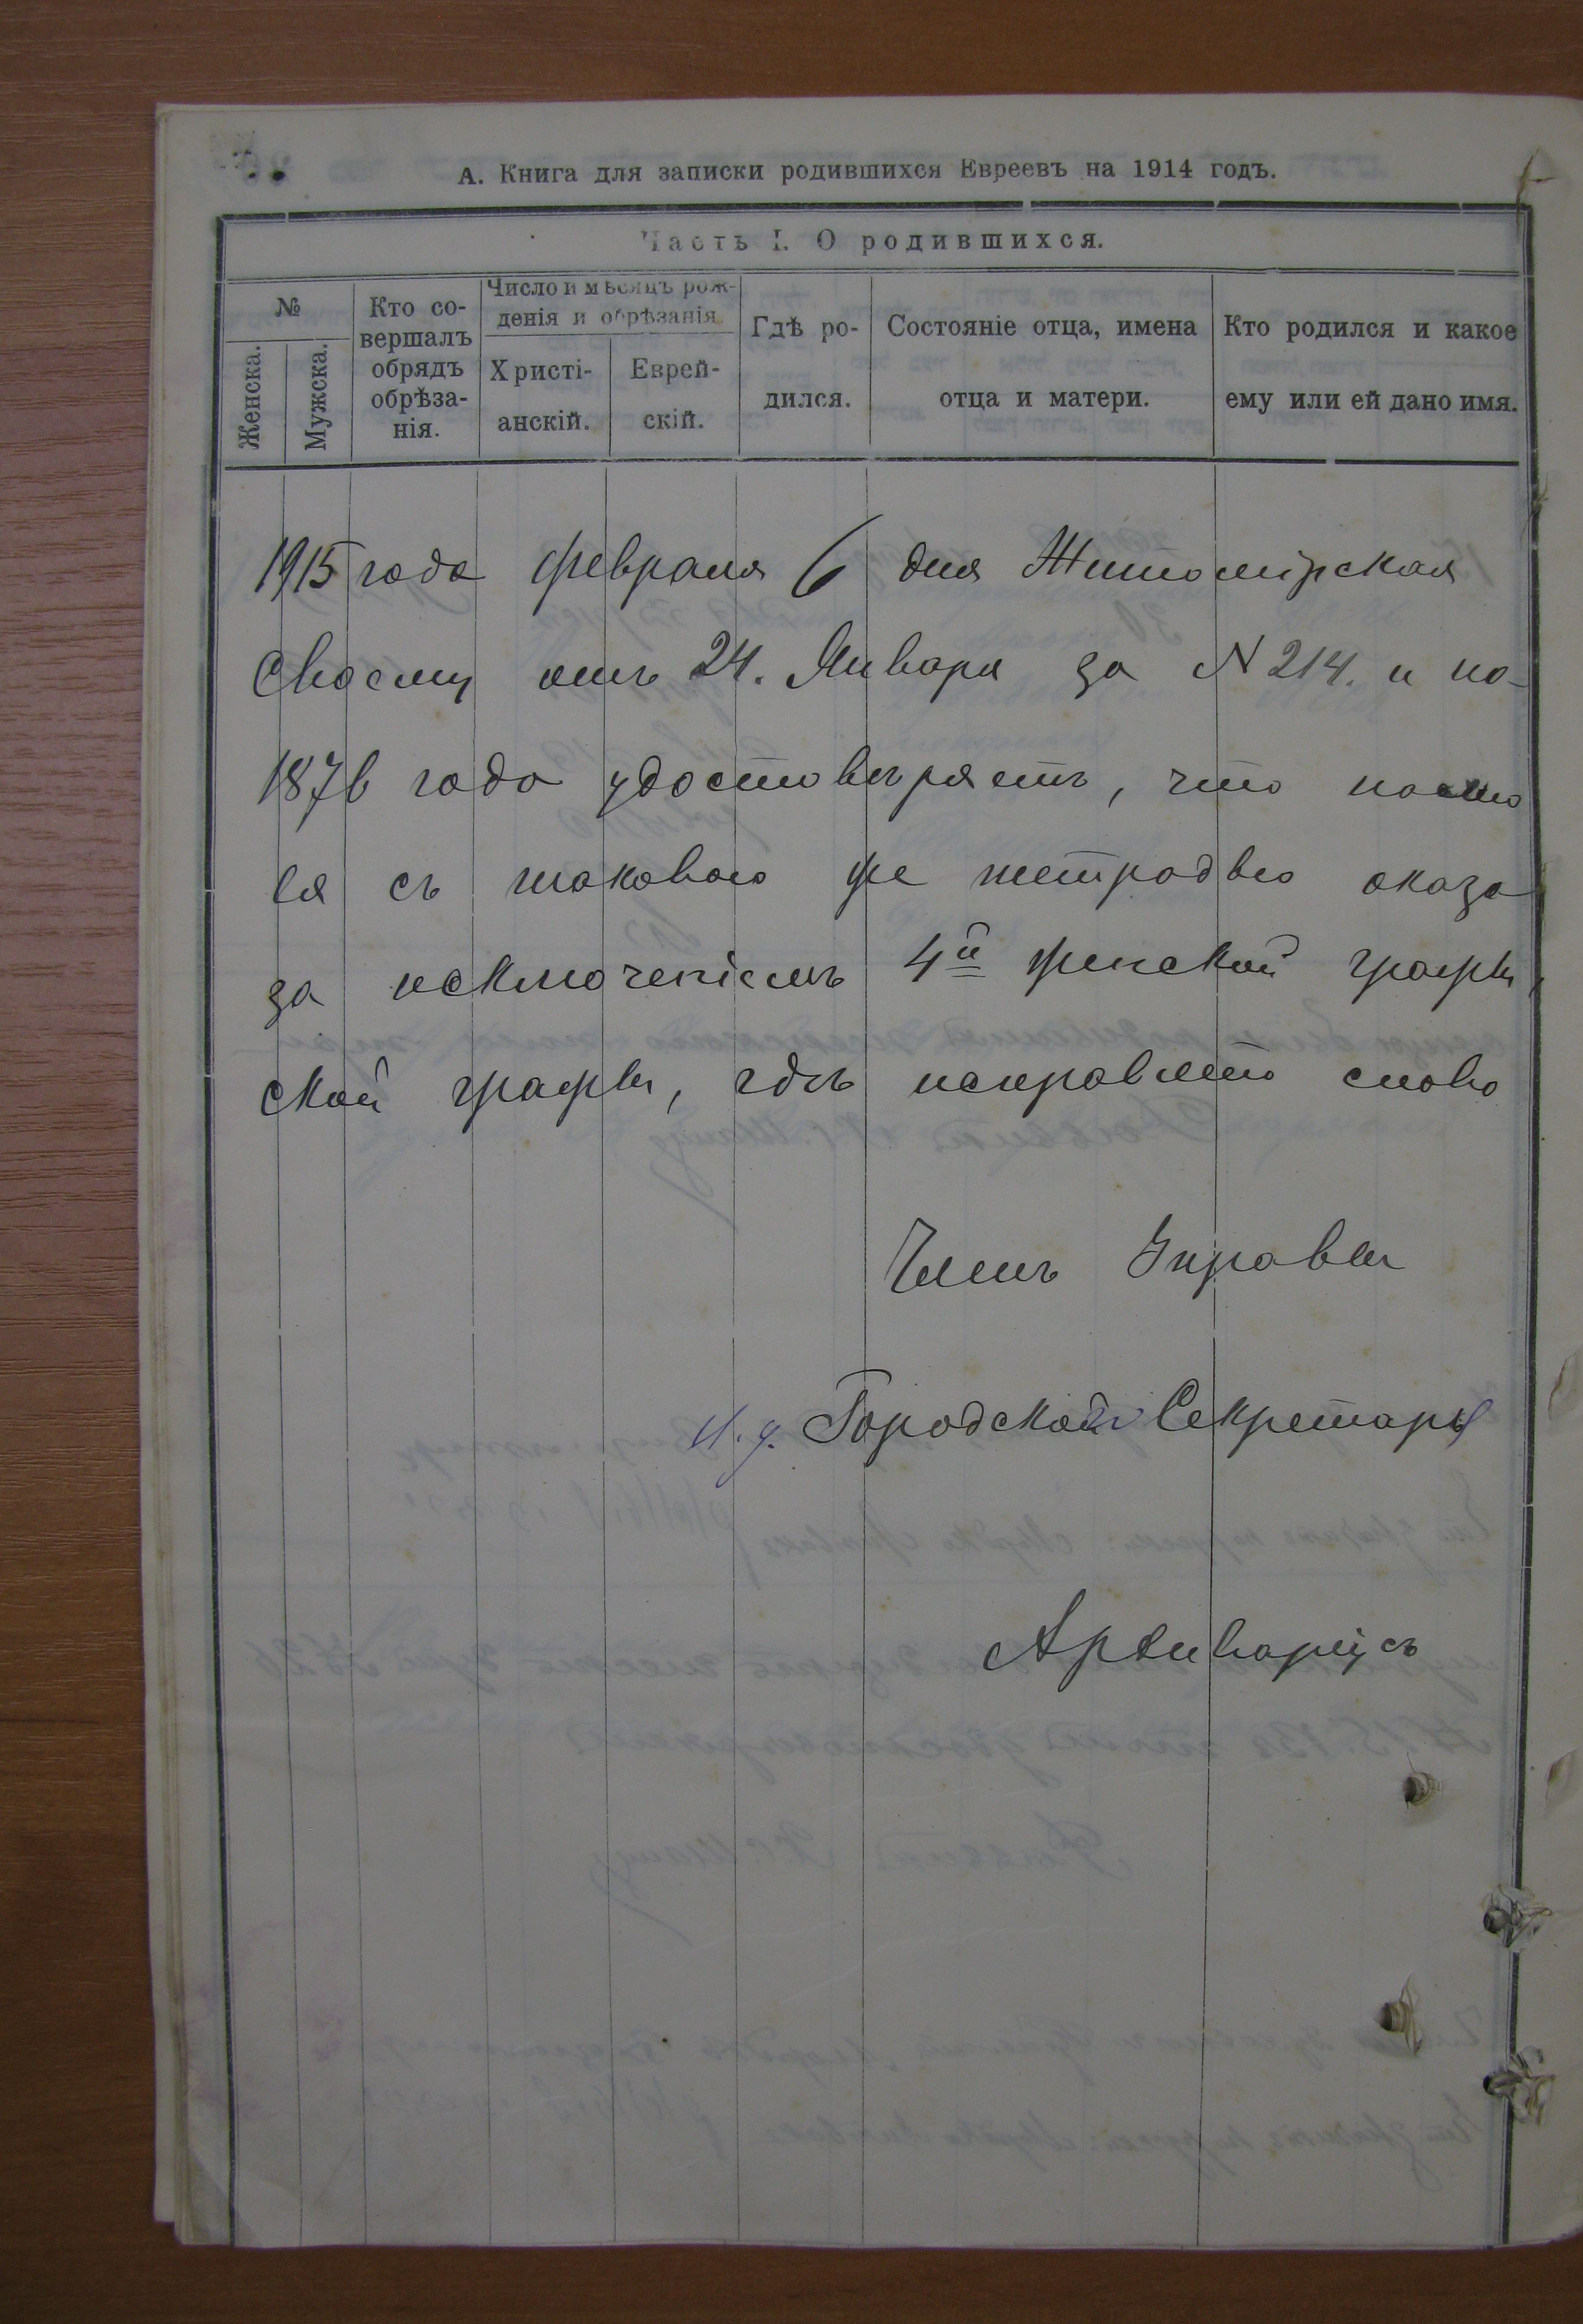 А. Книга для записки родившихся Евреевъ на 1914 годъ.
Часть I. О родившихся.
№
Женска.
Мужска.
Кто со-
вершалъ
обрядъ
обрѣза-
нія.
Число и мѣсяцъ рож-
денія и обрѣзанія
Христі-
анскій.
Еврей-
скій.
Гдѣ ро-
дился.
Состояніе отца, имена
отца и матери.
Кто родился и какое
ему или ей дано имя.
1915 года февраля 6 дня Житомірская
своему отъ 24. Января за N 214. и по-
1876 года удостовѣряетъ, что
ся съ таковою же тетрадью оказа
за исключеніемъ 4й женской графы,
ской графы, гдѣ исправлено слово
Членъ Управы
И. д. Городской Секретарь
Архиваріусъ